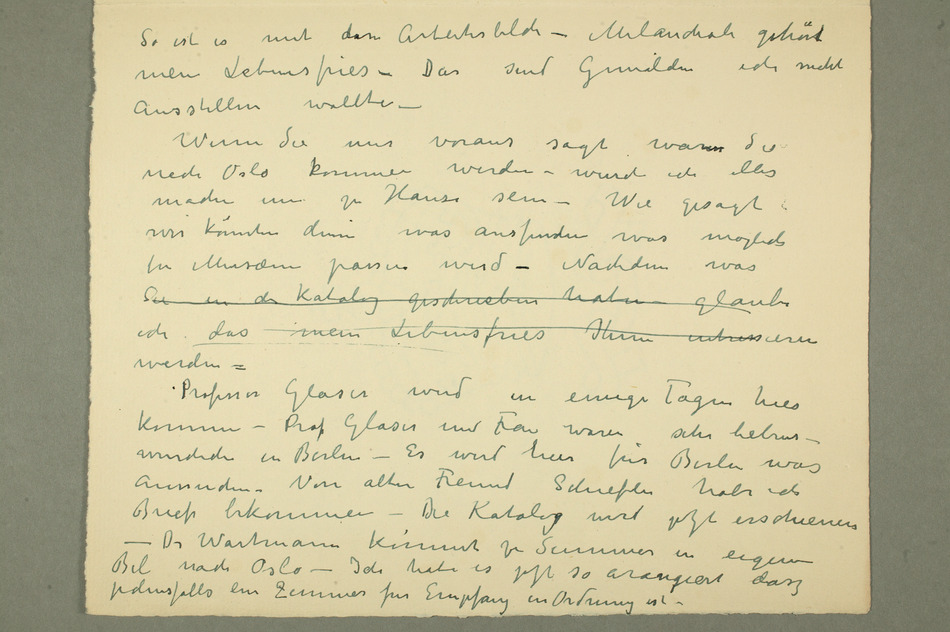 So ist es mit dem Arbeiterbilde – Melancholi gehört
mein Lebensfries – Das sind Gemälden ich nicht
Ausstellen wollte –
Wenn Sie mir voraus sagt wann Sie
nach Oslo kommen werden – würd ich alles
machen um zu Hause sein – Wie gesagt
wir könnten dann was ausfinden was moglich
für Museum passen wird – Nachdem was
Sie in der Katalog geschrieben haben – glaube
ich das mein Lebensfries Ihnen intressieren
werden =
Professor Glaser wird in einige Tagen hier
kommen – Prof Glaser und Frau waren sehr liebens–
wurdich in Berlin – Er wird hier für Berlin was
Von alten Freund Schiefler habe ich
Brief bekommen – Die Katalog wird jetzt erschienen
– Dr Wartmann kommt zu Summer in eigene
Bil nach Oslo – Ich habe es jetzt so arangiert dasz
jedenfalls ein Zimmer für Empfang in Ordnung ist –